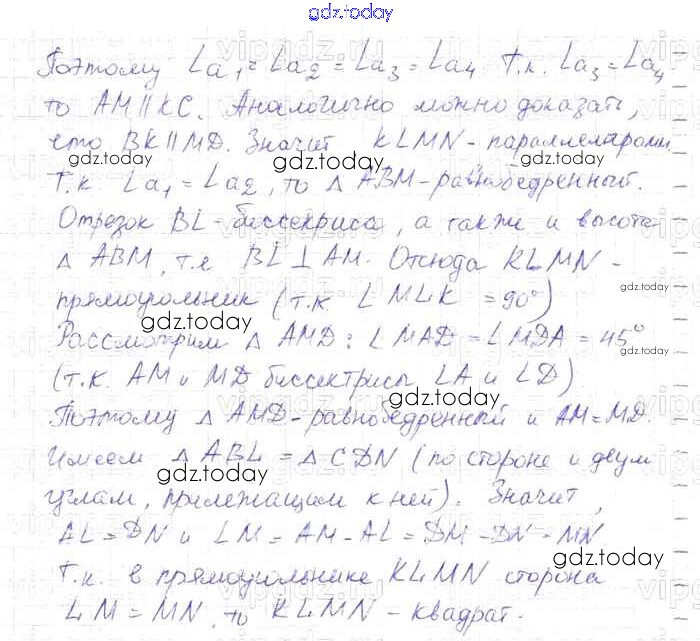 gdz.today
Поэтому ∠a₁ = ∠a₂ = ∠a₃ = ∠a₄ Т.к. ∠a₃ = ∠a₄
то AM ∥ KC. Аналогично можно доказать,
что BK ∥ MD. Значит KLMN - параллелограмм.
gdz.today gdz.today gdz.today
Т.к ∠a₁ = ∠a₂, то △ ABM - равнобедренный.
Отрезок BL - биссектриса, а также и высота
△ ABM, т.е BL ⊥ AM. Отсюда KLMN -
gdz.today
прямоугольник (т.к. ∠ MLK = 90°)
gdz.today
Рассмотрим △ AMD: ∠ MAD = ∠ MDA = 45°
gdz.today
(т.к. AM и MD биссектрисы ∠A и ∠D)
gdz.today
Поэтому △ AMD - равнобедренный и AM = MD.
Имеем △ ABL = △ CDN (по стороне и двум
gdz.today
углам, прилежащим к ней). Значит,
AL = DN и LM = AM - AL = DM - DN = MN
gdz.today
Т.к. в прямоугольнике KLMN сторона
LM = MN, то KLMN - квадрат.